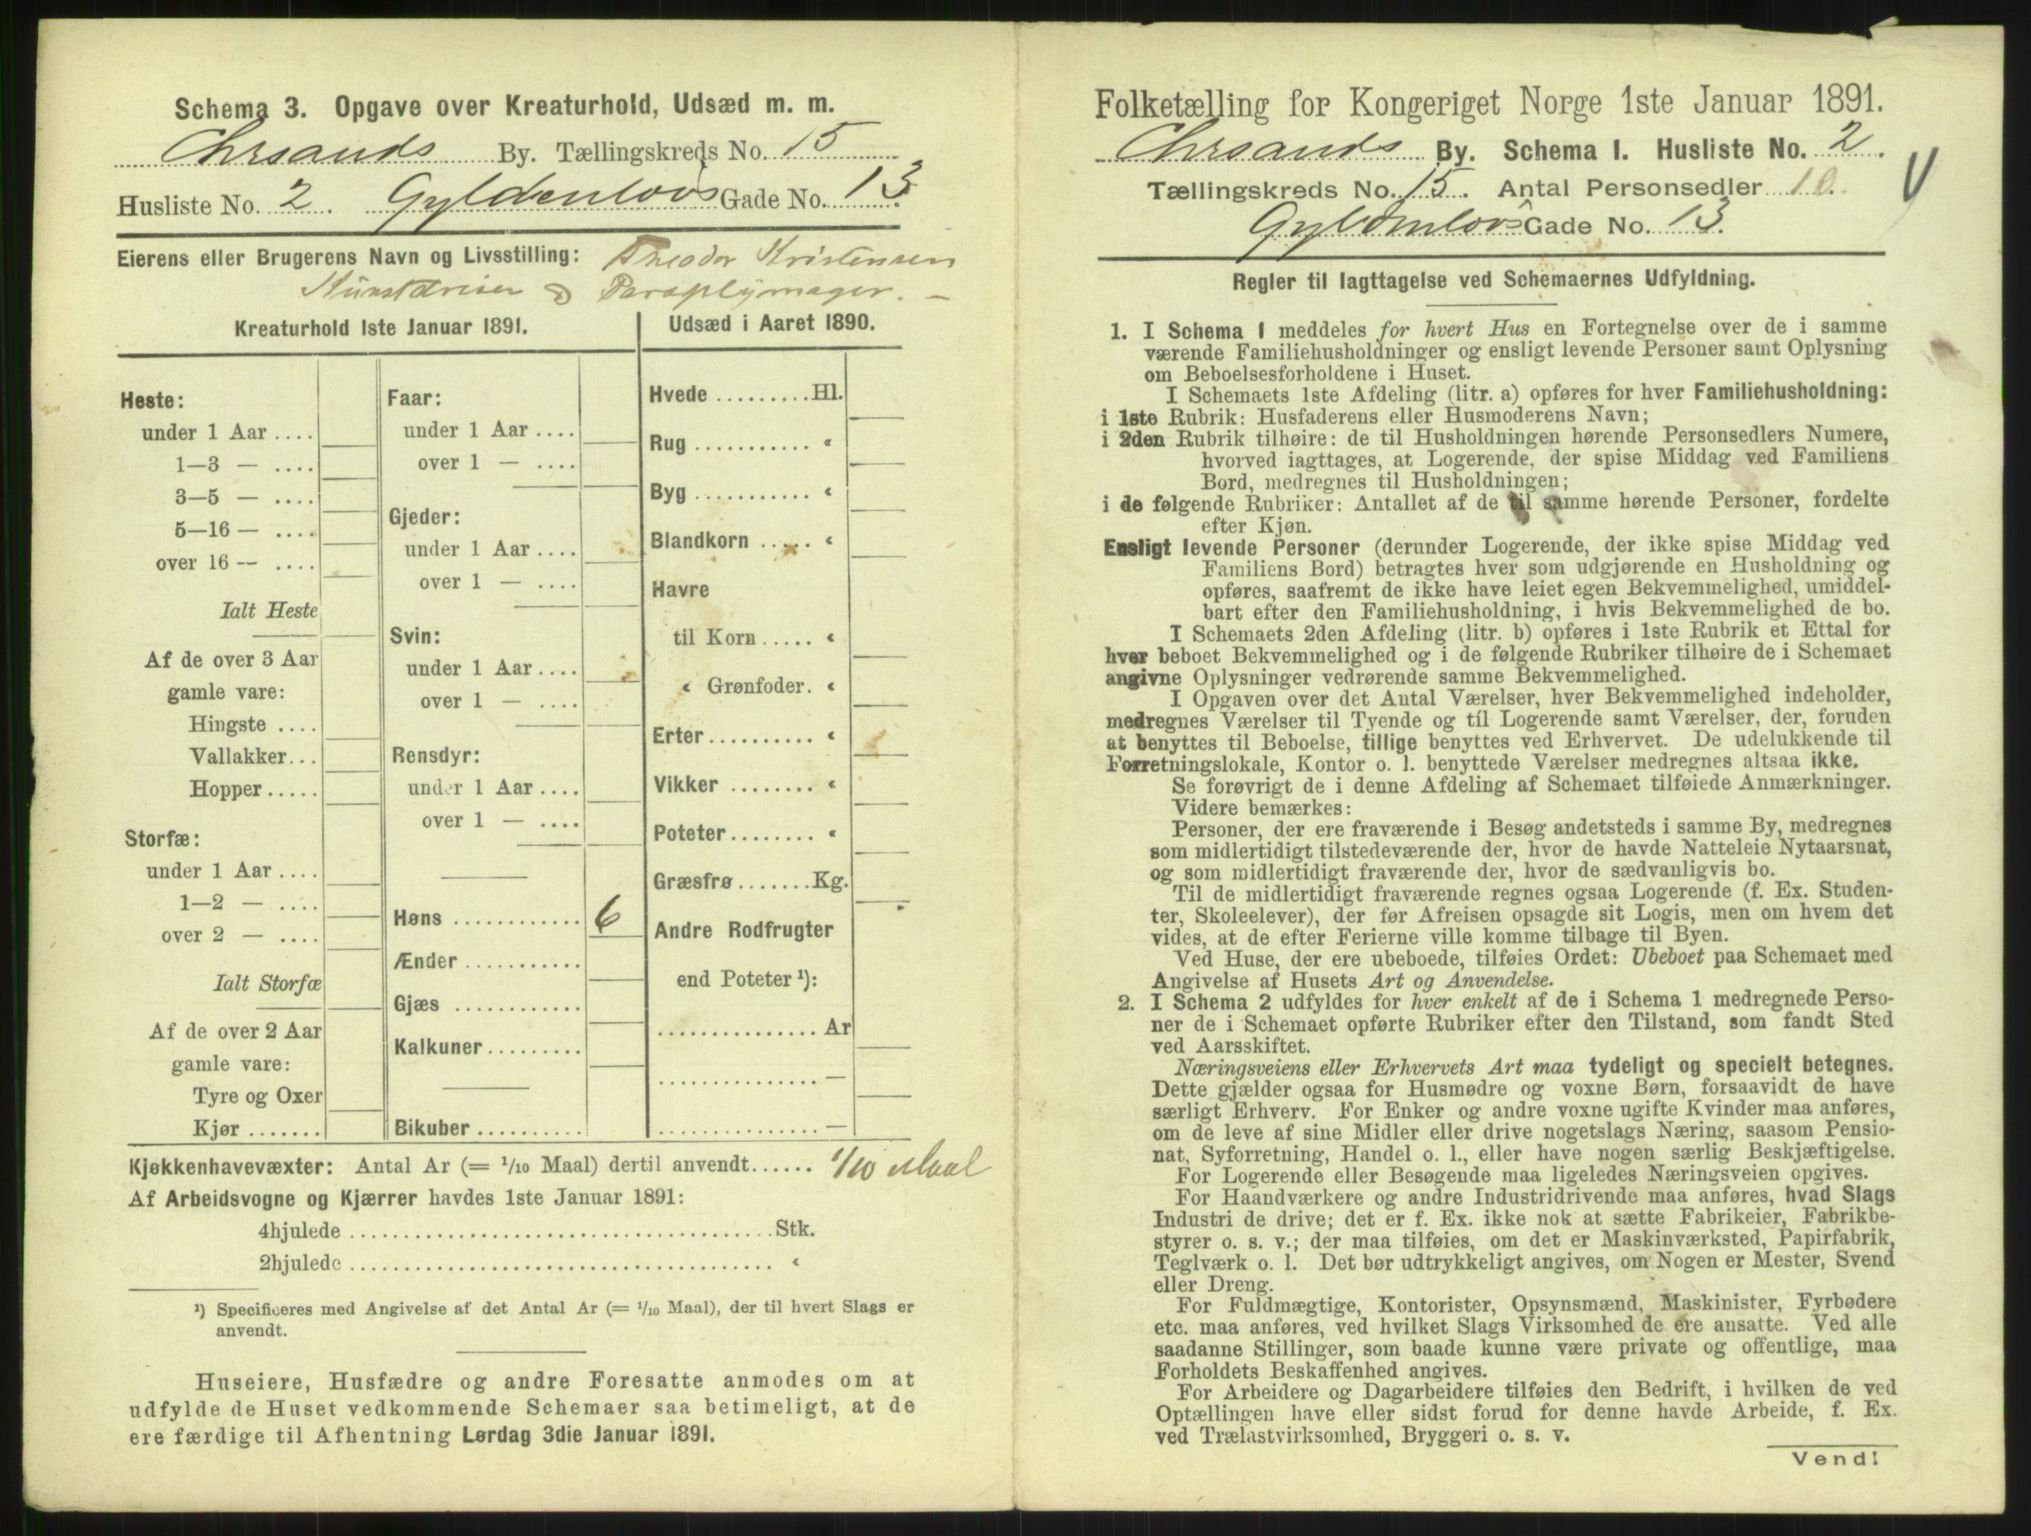 Schema 3. Opgave over Kreaturhold, Udsæd m. m.
Chrsands By. Tællingskreds No. 15
Husliste No. 2. Gyldenlovs Gade No. 13.
Eierens eller Brugerens Navn og Livsstilling: Theodor Kristensen
Kunstdreier & Paraplymager. —
Kreaturhold 1ste Januar 1891.
Udsæd i Aaret 1890.
Heste:
under 1 Aar ....
1—3 — ....
3—5 — ....
5—16 — ....
over 16 — ....
Ialt Heste
Af de over 3 Aar
gamle vare:
Hingste ....
Vallakker...
Hopper.....
Storfæ:
under 1 Aar ....
1—2 — ....
over 2 — ....
Ialt Storfæ
Af de over 2 Aar
gamle vare:
Tyre og Oxer
Kjør .......
Faar:
under 1 Aar ....
over 1 — ....
Gjeder:
under 1 Aar ....
over 1 — ....
Svin:
under 1 Aar ....
over 1 — ....
Rensdyr:
under 1 Aar ....
over 1 — ....
Høns ............ 6
Ænder ...........
Gjæs ............
Kalkuner.........
Bikuber ..........
Hvede .........Hl.
Rug ........... «
Byg ........... «
Blandkorn ..... «
Havre
til Korn ..... «
« Grønfoder. «
Erter.......... «
Vikker ........ «
Poteter........ «
Græsfrø.......Kg.
Andre Rodfrugter
end Poteter ¹):
...............Ar
............... —
............... —
Kjøkkenhavevæxter: Antal Ar (= 1/10 Maal) dertil anvendt...... 1/10 Maal
Af Arbeidsvogne og Kjærrer havdes 1ste Januar 1891:
4hjulede ........................................Stk.
2hjulede ........................................ «
¹) Specificeres med Angivelse af det Antal Ar (= 1/10 Maal), der til hvert Slags er
anvendt.
Huseiere, Husfædre og andre Foresatte anmodes om at
udfylde de Huset vedkommende Schemaer saa betimeligt, at de
ere færdige til Afhentning Lørdag 3die Januar 1891.
Folketælling for Kongeriget Norge 1ste Januar 1891.
Chrsands By. Schema 1. Husliste No. 2.
Tællingskreds No. 15. Antal Personsedler 10.
Gyldenlovs Gade No. 13.
Regler til Iagttagelse ved Schemaernes Udfyldning.
1. I Schema 1 meddeles for hvert Hus en Fortegnelse over de i samme
værende Familiehusholdninger og ensligt levende Personer samt Oplysning
om Beboelsesforholdene i Huset.
I Schemaets 1ste Afdeling (litr. a) opføres for hver Familiehusholdning:
i 1ste Rubrik: Husfaderens eller Husmoderens Navn;
i 2den Rubrik tilhøire: de til Husholdningen hørende Personsedlers Numere,
hvorved iagttages, at Logerende, der spise Middag ved Familiens
Bord, medregnes til Husholdningen;
i de følgende Rubriker: Antallet af de til samme hørende Personer, fordelte
efter Kjøn.
Ensligt levende Personer (derunder Logerende, der ikke spise Middag ved
Familiens Bord) betragtes hver som udgjørende en Husholdning og
opføres, saafremt de ikke have leiet egen Bekvemmelighed, umiddel-
bart efter den Familiehusholdning, i hvis Bekvemmelighed de bo.
I Schemaets 2den Afdeling (litr. b) opføres i 1ste Rubrik et Ettal for
hver beboet Bekvemmelighed og i de følgende Rubriker tilhøire de i Schemaet
angivne Oplysninger vedrørende samme Bekvemmelighed.
I Opgaven over det Antal Værelser, hver Bekvemmelighed indeholder,
medregnes Værelser til Tyende og til Logerende samt Værelser, der, foruden
at benyttes til Beboelse, tillige benyttes ved Erhvervet. De udelukkende til
Forretningslokale, Kontor o. l. benyttede Værelser medregnes altsaa ikke.
Se forøvrigt de i denne Afdeling af Schemaet tilføiede Anmærkninger.
Videre bemærkes:
Personer, der ere fraværende i Besøg andetsteds i samme By, medregnes
som midlertidigt tilstedeværende der, hvor de havde Natteleie Nytaarsnat,
og som midlertidigt fraværende der, hvor de sædvanligvis bo.
Til de midlertidigt fraværende regnes ogsaa Logerende (f. Ex. Studen-
ter, Skoleelever), der før Afreisen opsagde sit Logis, men om hvem det
vides, at de efter Ferierne ville komme tilbage til Byen.
Ved Huse, der ere ubeboede, tilføies Ordet: Ubeboet paa Schemaet med
Angivelse af Husets Art og Anvendelse.
2. I Schema 2 udfyldes for hver enkelt af de i Schema 1 medregnede Perso-
ner de i Schemaet opførte Rubriker efter den Tilstand, som fandt Sted
ved Aarsskiftet.
Næringsveiens eller Erhvervets Art maa tydeligt og specielt betegnes.
Dette gjælder ogsaa for Husmødre og voxne Børn, forsaavidt de have
særligt Erhverv. For Enker og andre voxne ugifte Kvinder maa anføres,
om de leve af sine Midler eller drive nogetslags Næring, saasom Pensio-
nat, Syforretning, Handel o. l., eller have nogen særlig Beskjæftigelse.
For Logerende eller Besøgende maa ligeledes Næringsveien opgives.
For Haandværkere og andre Industridrivende maa anføres, hvad Slags
Industri de drive; det er f. Ex. ikke nok at sætte Fabrikeier, Fabrikbe-
styrer o. s. v.; der maa tilføies, om det er Maskinværksted, Papirfabrik,
Teglværk o. l. Det bør udtrykkeligt angives, om Nogen er Mester, Svend
eller Dreng.
For Fuldmægtige, Kontorister, Opsynsmænd, Maskinister, Fyrbødere
etc. maa anføres, ved hvilket Slags Virksomhed de ere ansatte. Ved alle
saadanne Stillinger, som baade kunne være private og offentlige, maa
Forholdets Beskaffenhed angives.
For Arbeidere og Dagarbeidere tilføies den Bedrift, i hvilken de ved
Optællingen have eller sidst forud for denne havde Arbeide, f. Ex.
ved Trælastvirksomhed, Bryggeri o. s. v.
Vend!